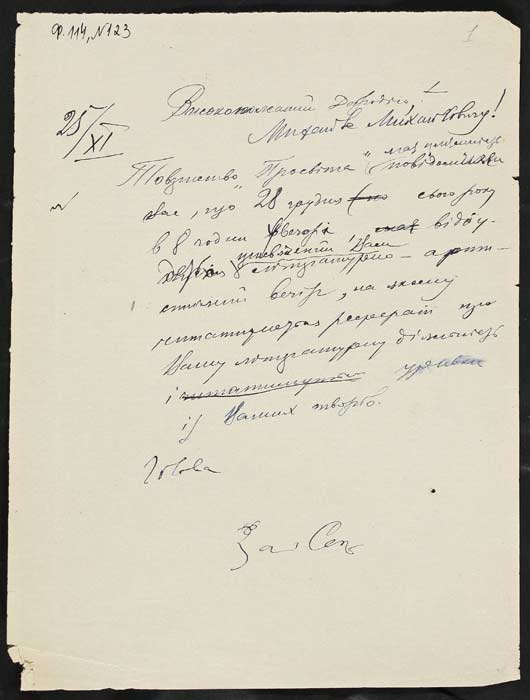 Ф. 114, №123
1
25/XI
Високоповажаний Добродію,
Михайле Михайловичу!
Товариство „Просвіта" має приємність повідомити
Вас, що 28 грудня сього року
в 8 годин ввечері, відбу-
деться присвячений Вам
літературно-артис-
тичний вечір, на якому
читатиметься реферат про
Вашу літературну діяльність
і читатимуться уривки
із Ваших творів.
Голова